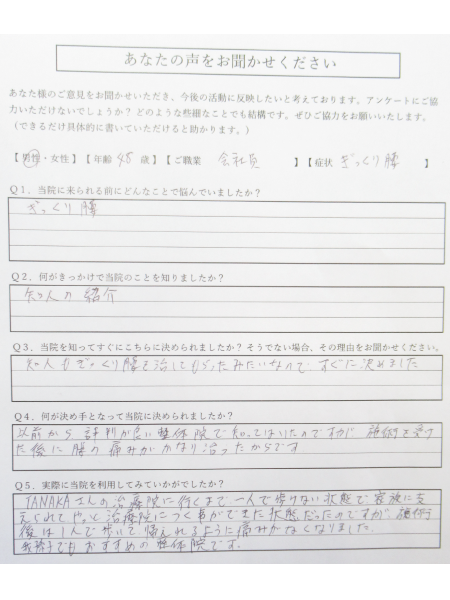 あなたの声をお聞かせください
あなた様のご意見をお聞かせいただき、今後の活動に反映したいと考えております。アンケートにご協
力いただけないでしょうか？ どのような些細なことでも結構です。ぜひご協力をお願いいたします。
（できるだけ具体的に書いていただけると助かります。）
【 男性・女性 】【 年齢 45 歳 】【 ご職業 会社員 】【 症状 ぎっくり腰 】
Q１．当院に来られる前にどんなことで悩んでいましたか？
ぎっくり腰
Q２．何がきっかけで当院のことを知りましたか？
知人の紹介
Q３．当院を知ってすぐにこちらに決められましたか？ そうでない場合、その理由をお聞かせください。
知人もぎっくり腰を治してもらったみたいなので すぐに決めました
Q４．何が決め手となって当院に決められましたか？
以前から 評判が良い整体院で知ってはいたのですが、施術を受け
た後に腰の痛みがかなり治ったからです
Q５．実際に当院を利用してみていかがでしたか？
TANAKAさんの治療院に行くまで一人で歩けない状態で家族に支
えられてやっと治療院につく事ができた状態だったのですが、施術
後は1人で歩いて帰れるように痛みがなくなりました。
でもおすすめの整体院です。